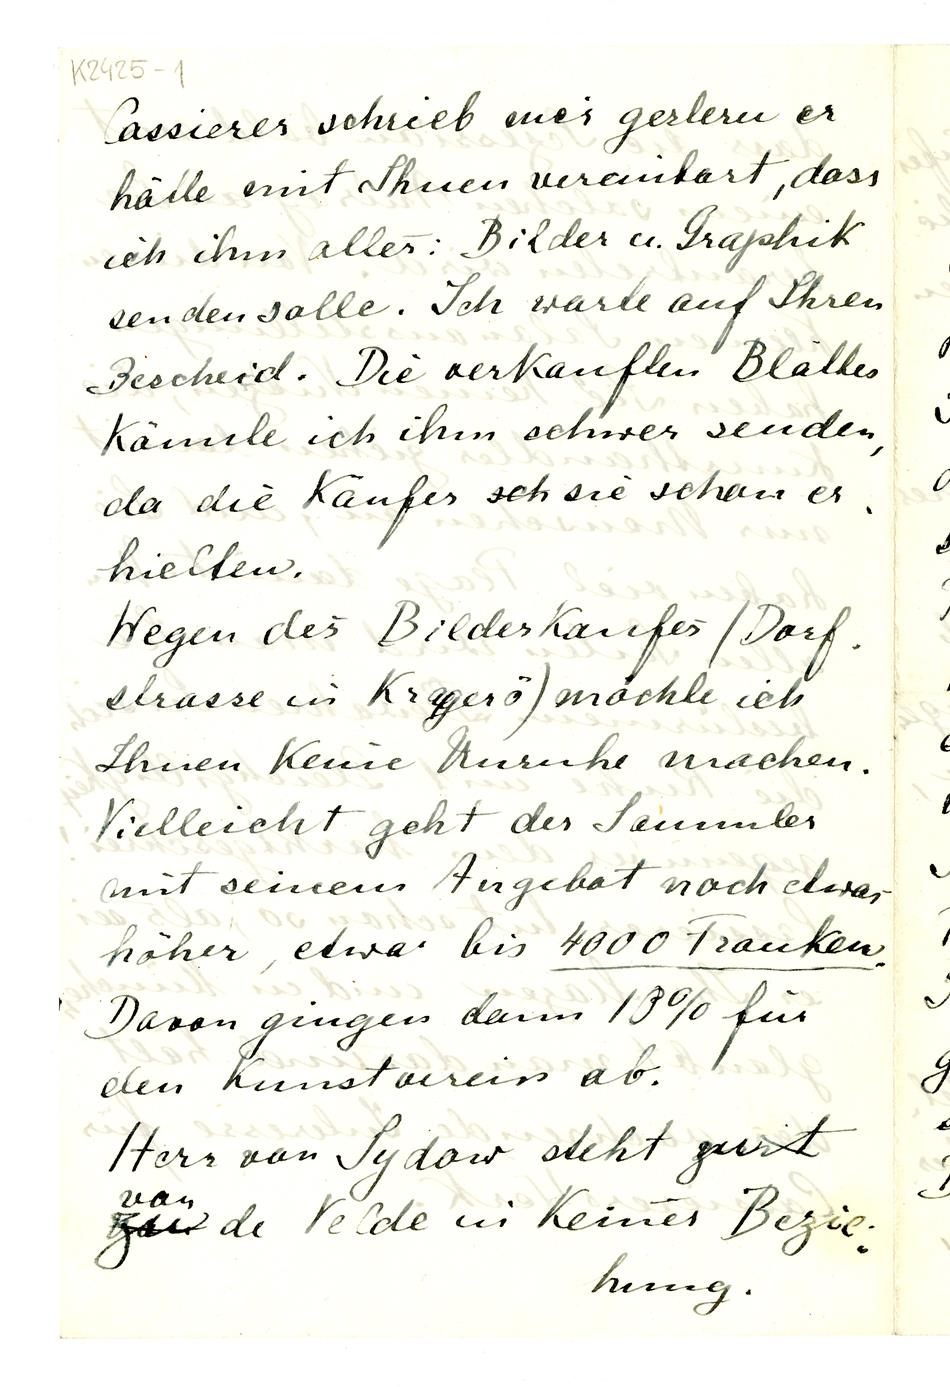 K2425-1
Cassierer schrieb mir gestern er
hätte mit Ihnen vereinbart, dass
ich ihm alles: Bilder u. Graphik
senden solle. Ich warte auf Ihren
Bescheid. Die verkauften Blätter
könnte ich ihm schwer senden,
da die Käufer sie schon er-
hielten.
Wegen des Bilderkaufes (Dorf-
strasse in Kragerö) möchte ich
Ihnen keine Unruhe machen.
Vielleicht geht der Sammler
mit seinem Angebot noch etwas
höher, etwa bis 4000 Franken.
Davon gingen dann 13% für
den Kunstverein ab.
Herr von Sydow steht
van
zu de Velde in keiner Bezie-
hung.